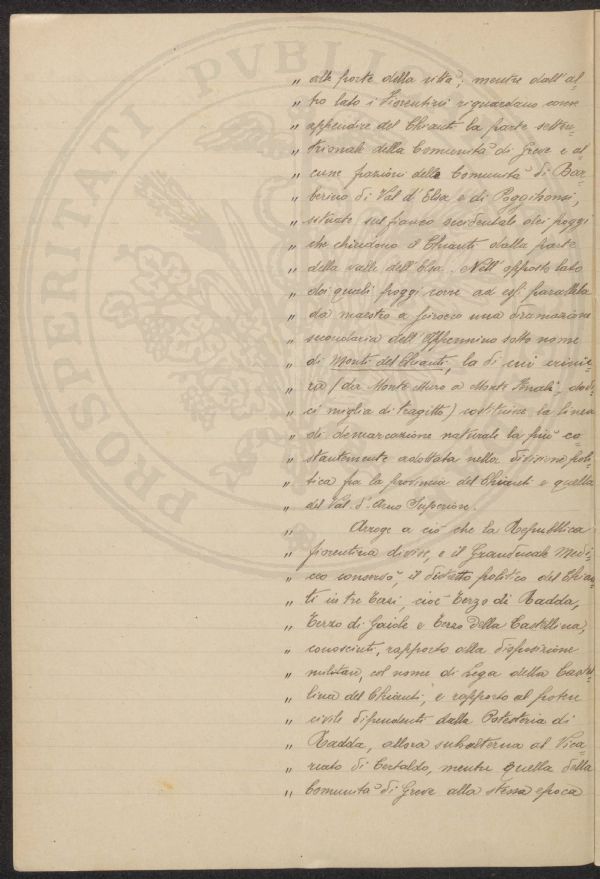 PROSPERITATI PVBLICAE
" alle porte della città; mentre dall'al=
" tro lato i Fiorentini riguardano come
" appendice del Chianti la parte setten=
" trionale della Comunità di Greve e al=
" cune frazioni delle Comunità di Bar=
" berino di Val d'Elsa e di Poggibonsi,
" situate sul fianco occidentale dei poggi
" che chiudono il Chianti dalla parte
" della valle dell'Elsa. Nell'opposto lato
" dei quali poggi corre ad essi parallela
" da maestro a scirocco una diramazione
" secondaria dell'Appennino sotto nome
" di Monti del Chianti, la di cui crinie=
" ra (da Monte Muro a Monte Fenali, dodi=
" ci miglia di tragitto) costituisce la linea
" di demarcazione naturale la più co=
" stantemente adottata nella divisione poli=
" tica fra la provincia del Chianti e quella
" del Val d'Arno Superiore.
" Arroge a ciò che la Repubblica
" fiorentina divise, e il Granducale Medi=
" ceo conservò, il distretto politico del Chian=
" ti in tre Terzi, cioè Terzo di Radda,
" Terzo di Gaiole e Terzo della Castellina,
" conosciuti, rapporto alla disposizione
" militare, col nome di Lega della Castel=
" lina del Chianti, e rapporto al potere
" civile dipendenti dalla Potesteria di
" Radda, allora subalterna al Vica=
" riato di Certaldo, mentre quella della
" Comunità di Greve alla stessa epoca